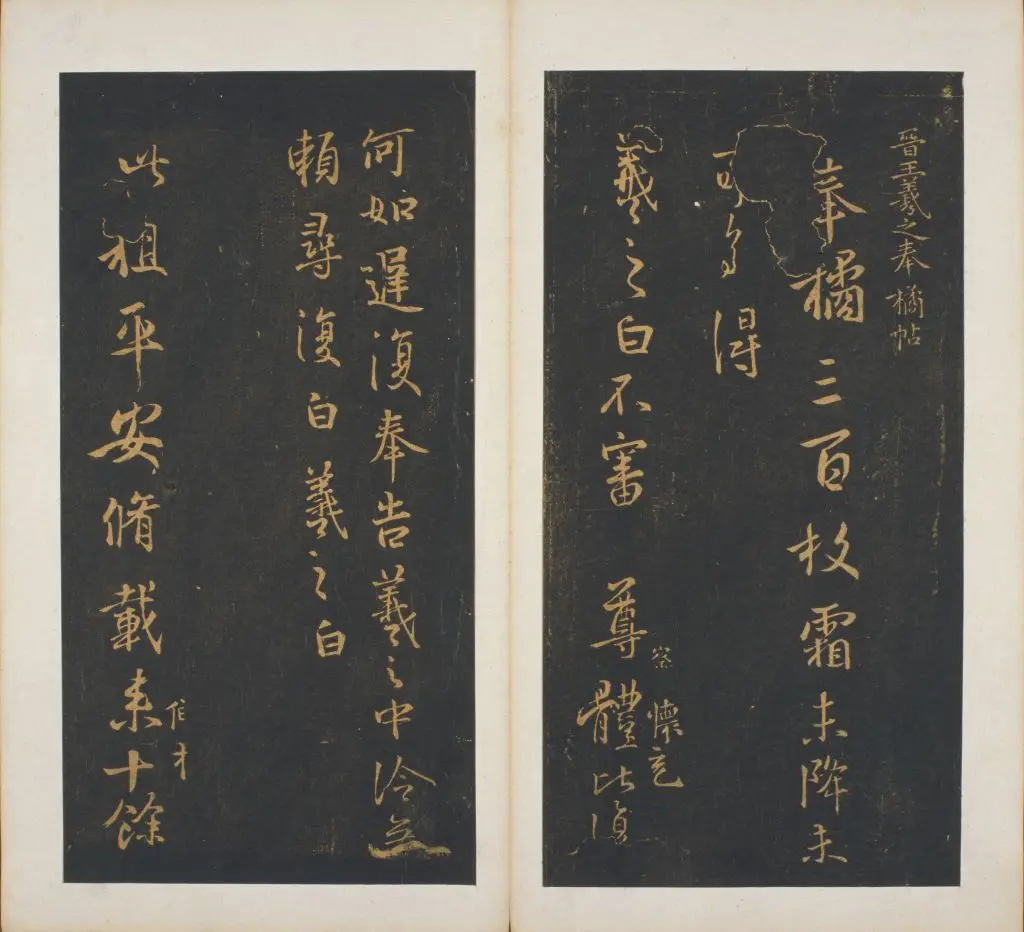 晉王羲之奉橘帖
奉橘三百枚霜未降未
可多得
羲之白不審尊體比復
察
懷充
何如遲復奉告羲之中冷無
賴尋復白羲之白
此粗平安脩載来十餘